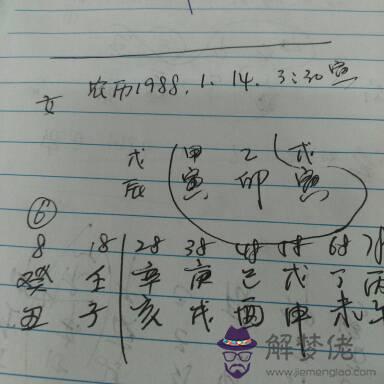 农历1988.1.14.3:30寅
女
戊 甲 乙 戊
辰 寅 卯 寅
⑥
8 18 28 38 48 58 68 78
癸 壬 辛 庚 己 戊 丁 丙
丑 子 亥 戌 酉 申 未 午
解梦佬
www.jiemenglao.com